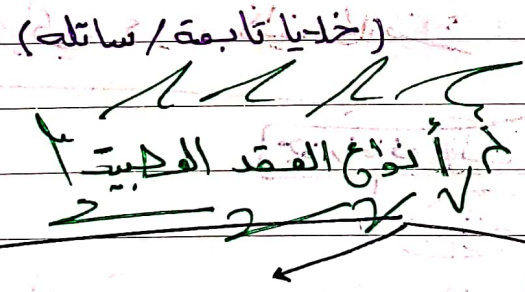 (خلايا تابعة / ساتله)
أ/ أنواع العقد العصبية